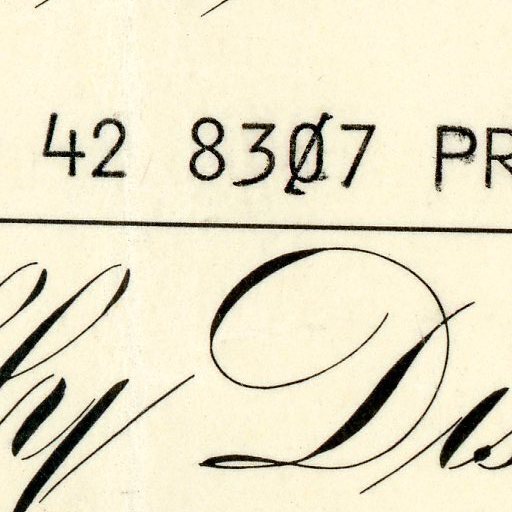 42 83Ø7 PR
by Dis